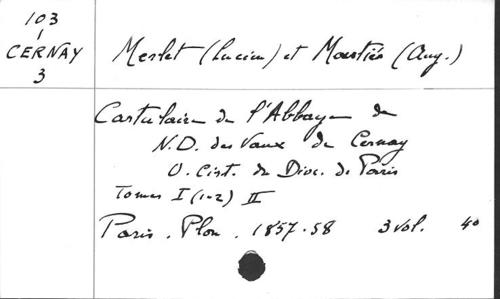 103
1
CERNAY
3
Merlet (Lucien) et Moutiés (Aug.)
Cartulaire de l'Abbaye de
N.D. des Vaux de Cernay
O. Cist. du Dioc. de Paris
Tomes I (1-2) II
Paris. Plon. 1857-58 3 vol. 4º